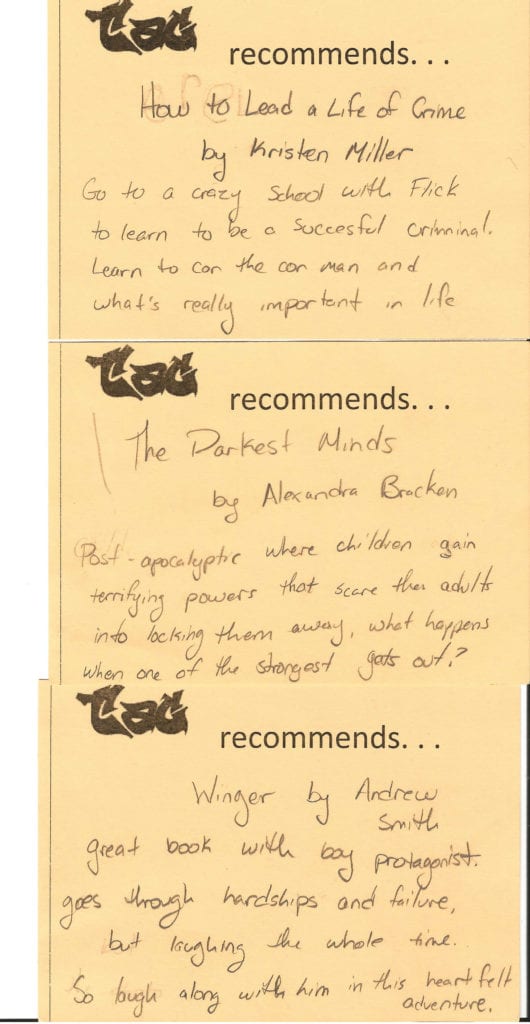 TAG
recommends. . .
How to Lead a Life of Crime
by Kristen Miller
Go to a crazy school with Flick
to learn to be a succesful criminal.
Learn to con the con man and
what's really important in life
TAG
recommends. . .
The Darkest Minds
by Alexandra Bracken
Post-apocalyptic where children gain
terrifying powers that scare the adults
into locking them away, what happens
when one of the strongest gets out?
TAG
recommends. . .
Winger by Andrew
Smith
great book with boy protagonist.
goes through hardships and failure,
but laughing the whole time.
So laugh along with him in this heart felt
adventure.